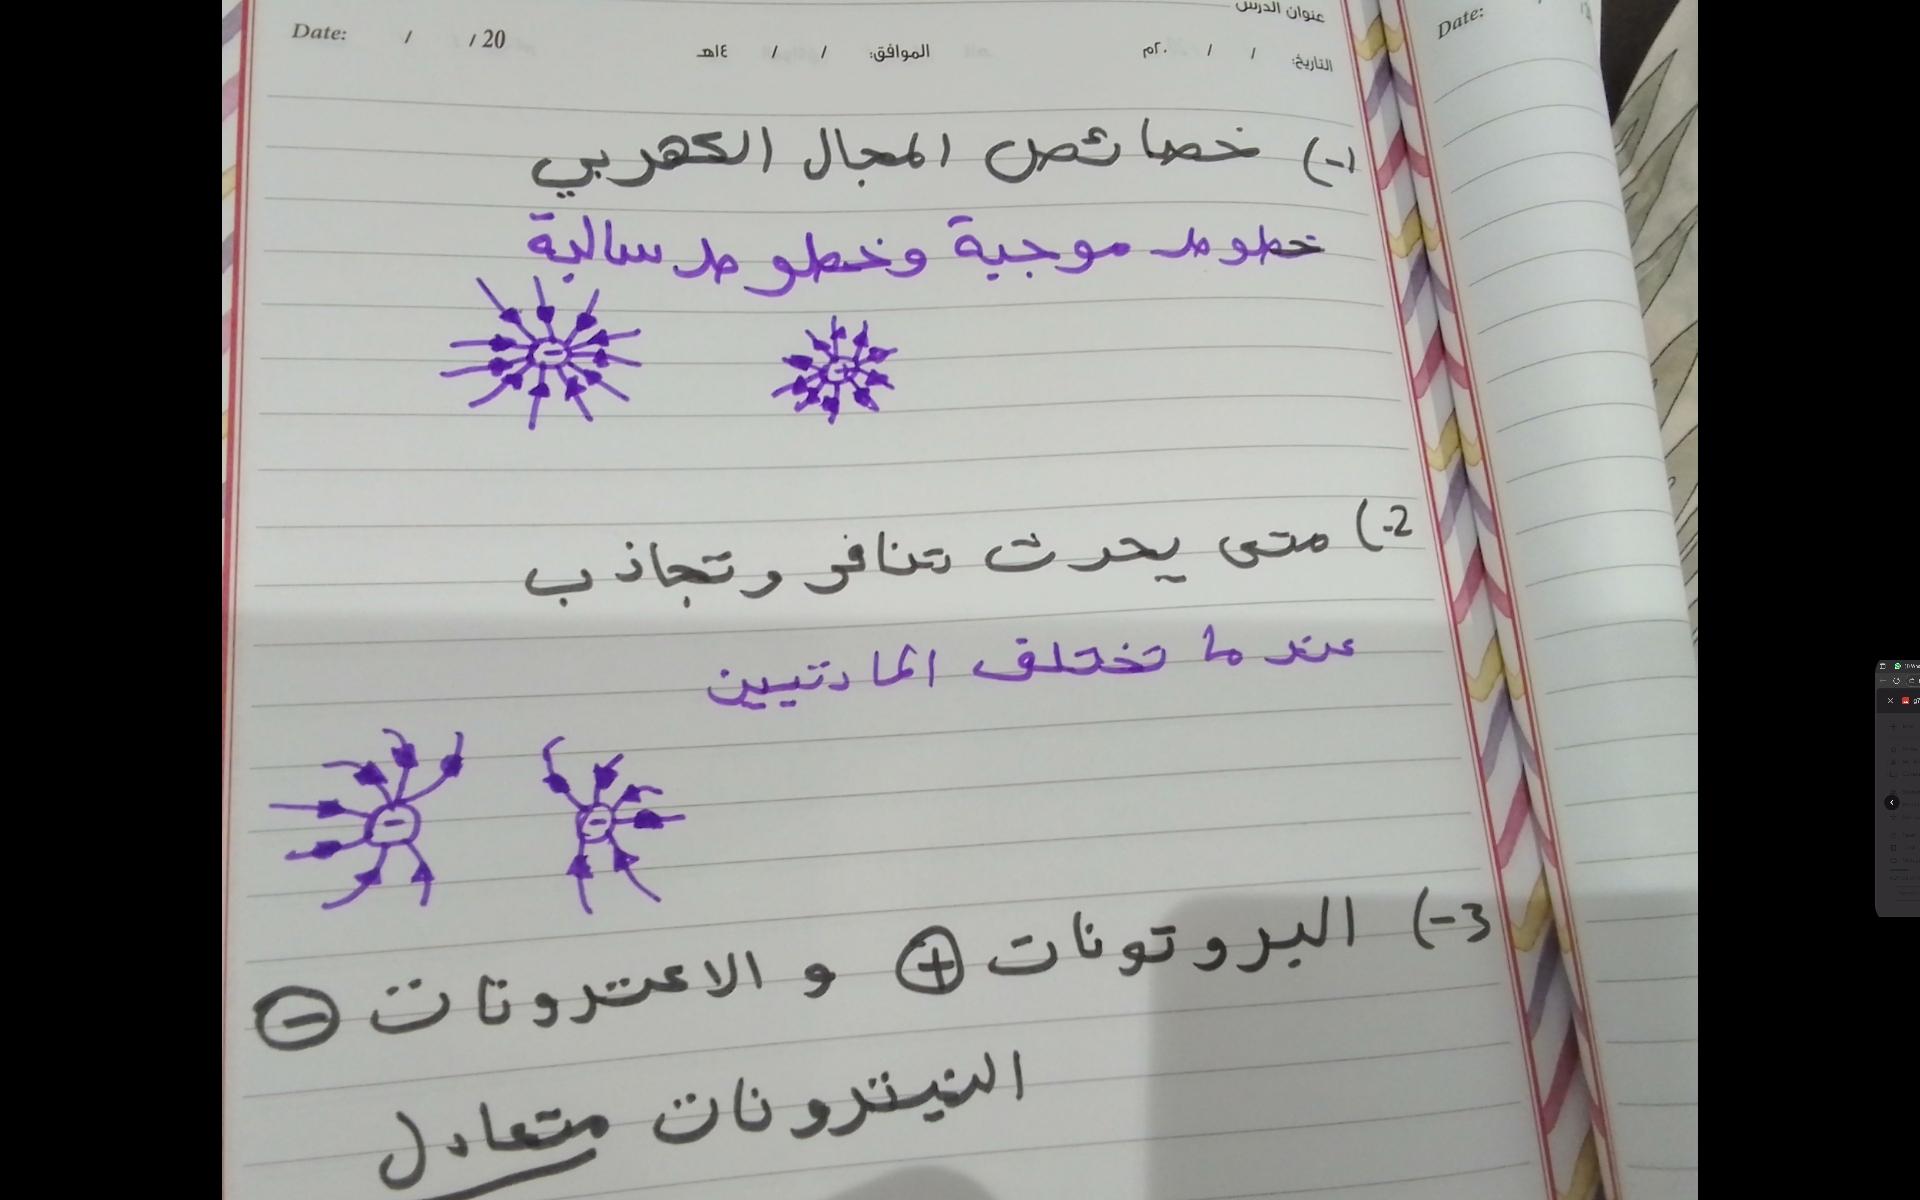 عنوان الدرس
Date: / / 20
الموافق: / / ١٤هـ
التاريخ: / / ٢٠م
Date:
1-) خصائص المجال الكهربي
خطوط موجبة وخطوط سالبة
- +
2-) متى يحدث تنافر وتجاذب
عندما تختلف المادتيين
- -
3-) البروتونات + و الاعترونات -
النيترونات متعادل